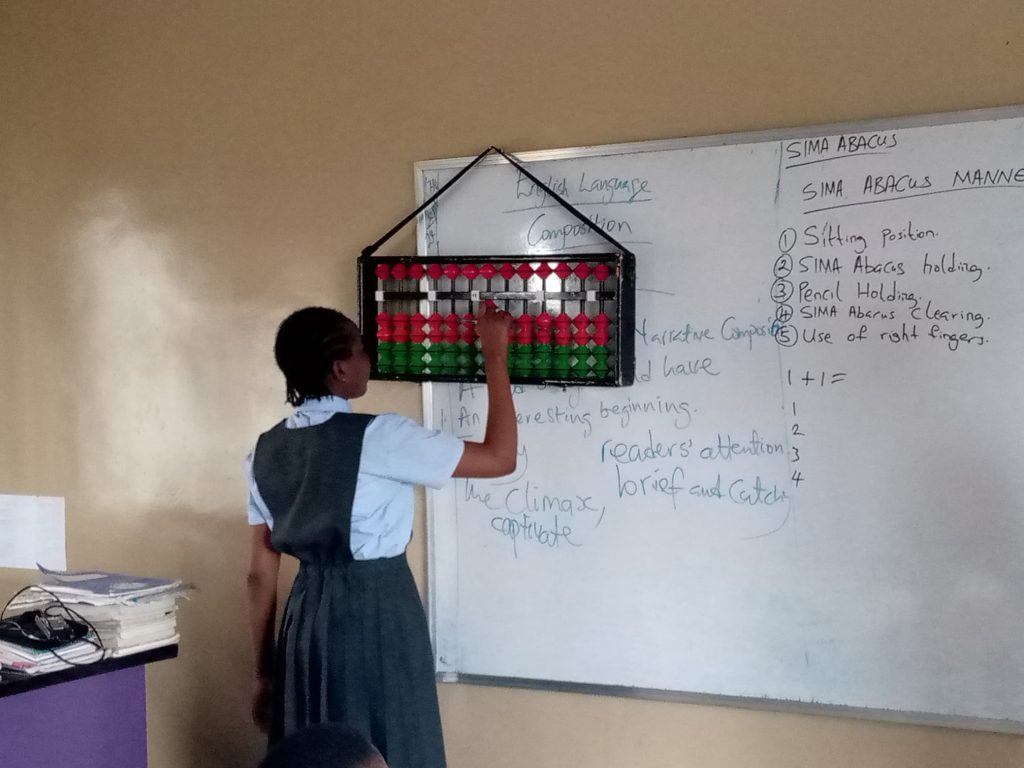 English Language
Composition
Narrative
have
An interesting beginning.
readers' attention
brief and
the Climax,
captivate
SIMA ABACUS
SIMA ABACUS MANNE
① Sitting Position.
② SIMA Abacus holding.
③ Pencil Holding.
④ SIMA Abacus Clearing.
⑤ Use of right fingers.
1 + 1 =
1
2
3
4